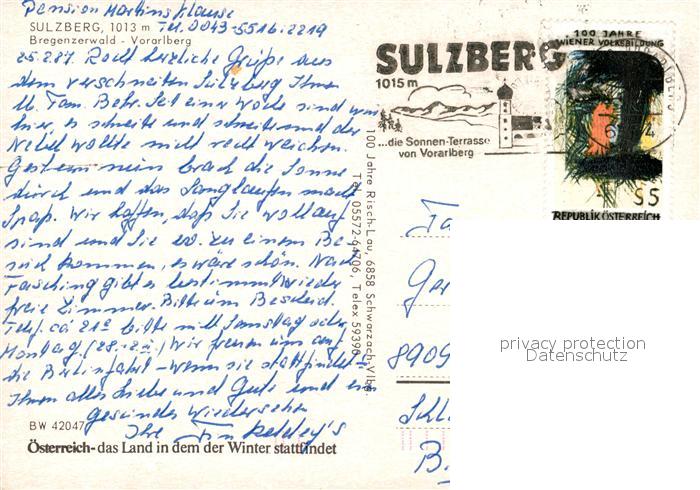 Pension Martinsklause
SULZBERG, 1013 m Tel. 0043-5516-2219
Bregenzerwald - Vorarlberg
25.2.87. Recht herzliche Grüße aus
dem verschneiten Sulzberg Ihnen
u. Fam. Behr. Seit einer Woche sind wir
hier, es schneite und schneite und der
Nebel wollte nicht recht weichen.
Gestern nun brach die Sonne
durch und das Langlaufen macht
Spaß. Wir hoffen, daß Sie wohlauf
sind und Sie ev. zu einem Be-
such kommen, es wäre schön. Nach
Fasching gibt es bestimmt wieder
freie Zimmer. Bitte um Bescheid.
Telef. ca 21° bitte mit Samstag oder
Montag (28.-2.) Wir freuen uns auf
die Berlinfahrt - wenn sie stattfindet -
Ihnen alles Liebe und Gute und ein
Gesundes Wiedersehen
Ihre
BW 42047
Österreich - das Land in dem der Winter stattfindet
100 Jahre Risch-Lau, 6858 Schwarzach-Vlbg.
Tel. 05572-64706, Telex 59390
SULZBERG
1015 m
...die Sonnen-Terrasse
von Vorarlberg
100 JAHRE
WIENER VOLKSBILDUNG
S5
REPUBLIK ÖSTERREICH
Fa
Ger
8909
Schl
B.
privacy protection
Datenschutz